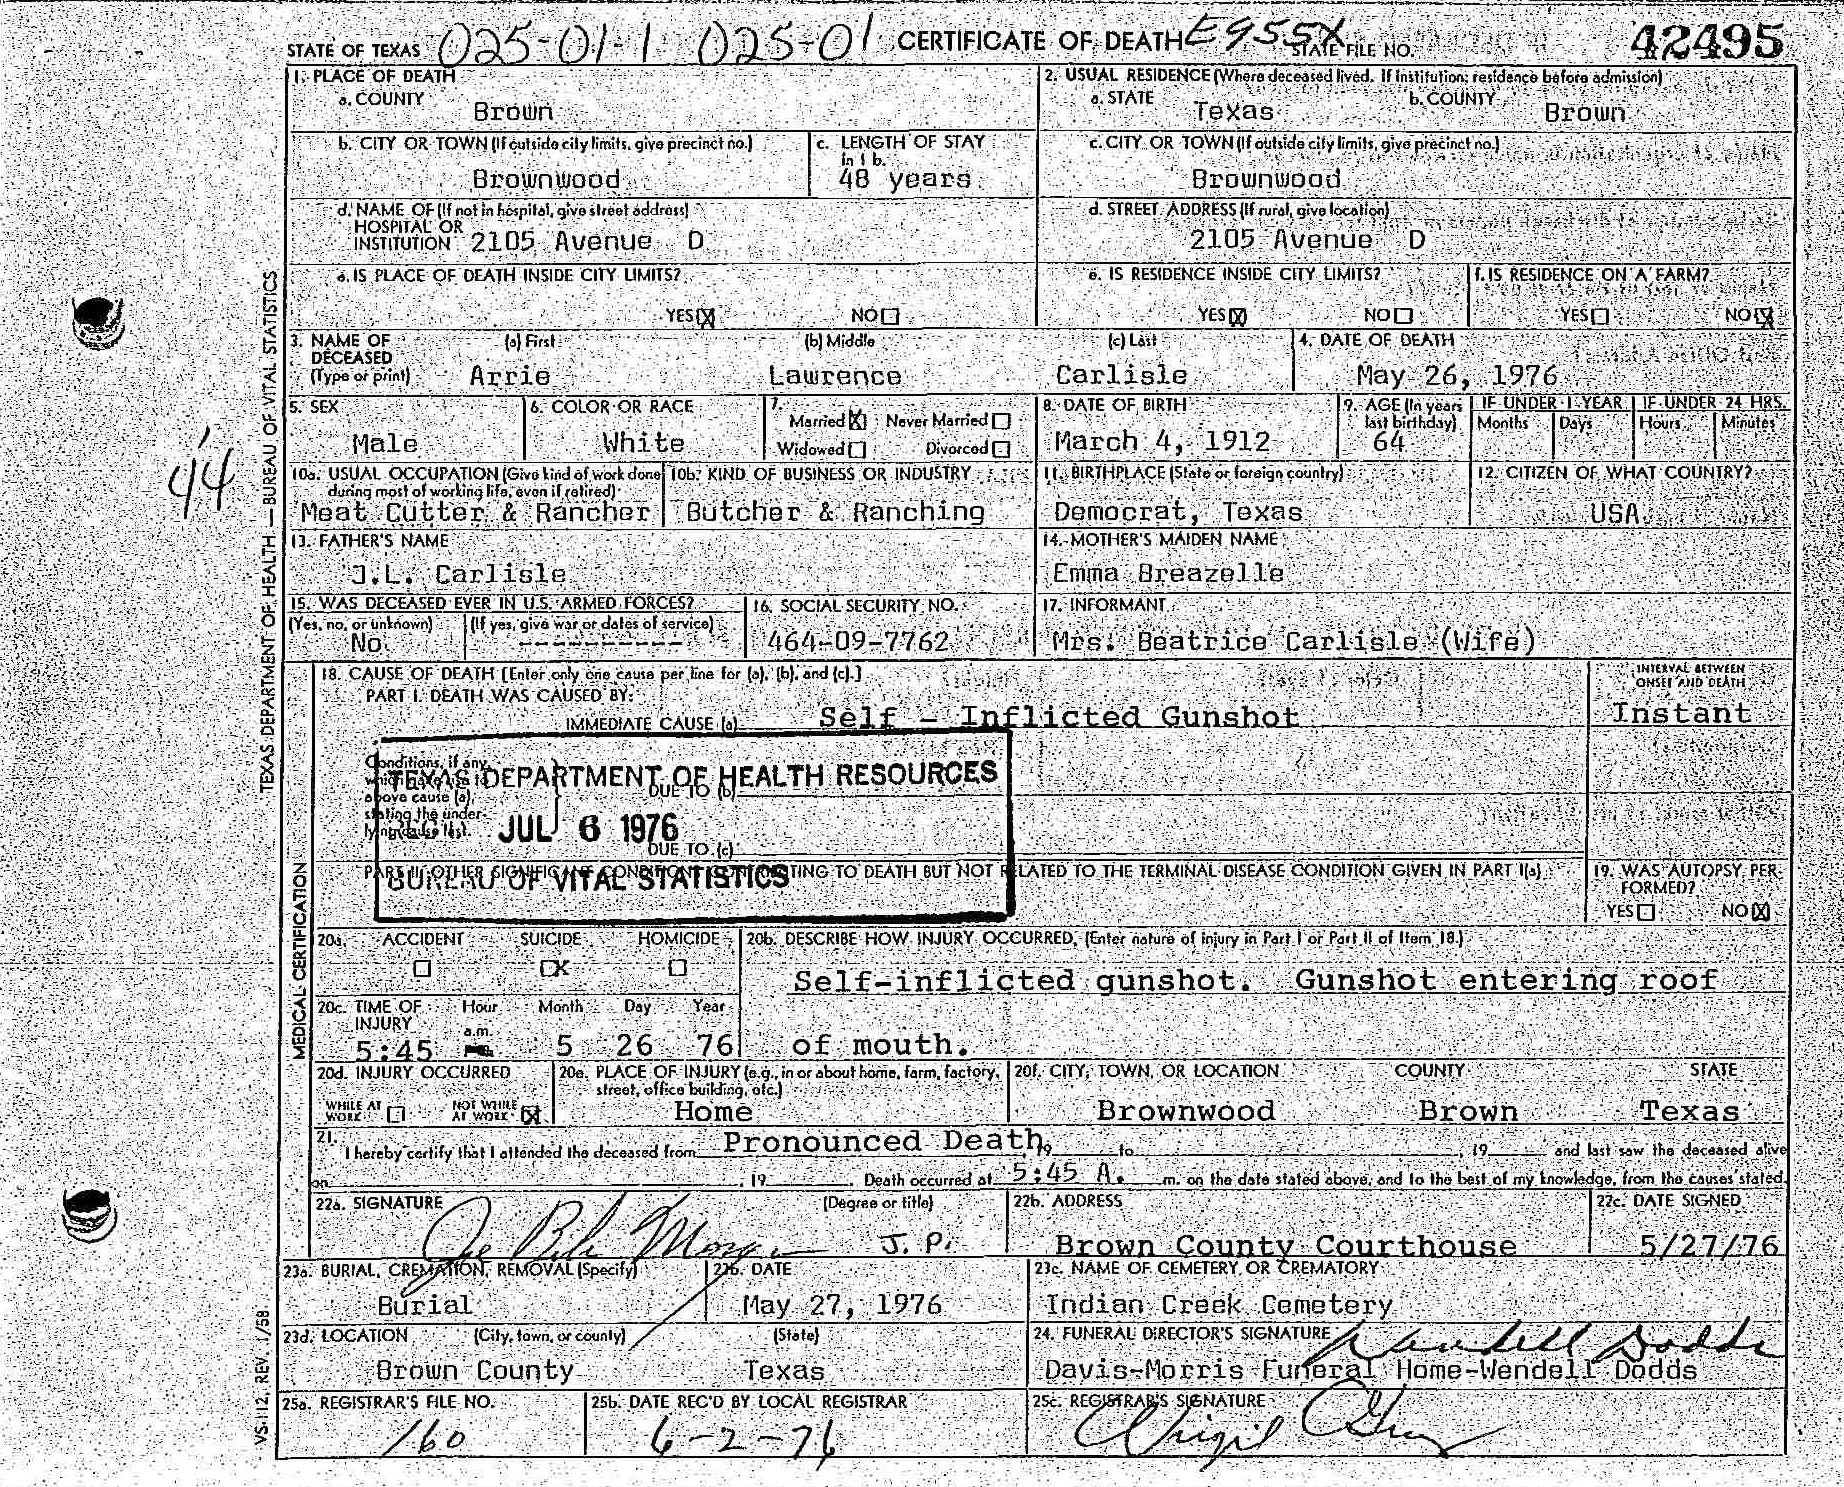 STATE OF TEXAS 025-01-1 025-01 CERTIFICATE OF DEATH E955X STATE FILE NO. 42495
1. PLACE OF DEATH
a. COUNTY
Brown
2. USUAL RESIDENCE (Where deceased lived. If institution: residence before admission)
a. STATE Texas b. COUNTY Brown
b. CITY OR TOWN (If outside city limits, give precinct no.)
Brownwood
c. LENGTH OF STAY
in 1 b.
48 years
c. CITY OR TOWN (If outside city limits, give precinct no.)
Brownwood
d. NAME OF (If not in hospital, give street address)
HOSPITAL OR
INSTITUTION 2105 Avenue D
d. STREET ADDRESS (If rural, give location)
2105 Avenue D
e. IS PLACE OF DEATH INSIDE CITY LIMITS?
YES X NO
e. IS RESIDENCE INSIDE CITY LIMITS?
YES X NO
f. IS RESIDENCE ON A FARM?
YES NO X
3. NAME OF
DECEASED
(Type or print)
(a) First (b) Middle (c) Last
Arrie Lawrence Carlisle
4. DATE OF DEATH
May 26, 1976
5. SEX
Male
6. COLOR OR RACE
White
7.
Married X Never Married
Widowed Divorced
8. DATE OF BIRTH
March 4, 1912
9. AGE (In years
last birthday)
64
IF UNDER 1 YEAR
Months Days
IF UNDER 24 HRS.
Hours Minutes
44
10a. USUAL OCCUPATION (Give kind of work done
during most of working life, even if retired)
Meat Cutter & Rancher
10b. KIND OF BUSINESS OR INDUSTRY
Butcher & Ranching
11. BIRTHPLACE (State or foreign country)
Democrat, Texas
12. CITIZEN OF WHAT COUNTRY?
USA
13. FATHER'S NAME
J.L. Carlisle
14. MOTHER'S MAIDEN NAME
Emma Breazelle
15. WAS DECEASED EVER IN U.S. ARMED FORCES?
(Yes, no, or unknown) (If yes, give war or dates of service)
No ----------
16. SOCIAL SECURITY NO.
464-09-7762
17. INFORMANT
Mrs. Beatrice Carlisle (Wife)
TEXAS DEPARTMENT OF HEALTH — BUREAU OF VITAL STATISTICS
MEDICAL CERTIFICATION
18. CAUSE OF DEATH [Enter only one cause per line for (a), (b), and (c).]
PART I. DEATH WAS CAUSED BY:
IMMEDIATE CAUSE (a) Self - Inflicted Gunshot
INTERVAL BETWEEN
ONSET AND DEATH
Instant
Conditions, if any,
which gave rise to
above cause (a),
stating the under-
lying cause last.
DUE TO (b)
DUE TO (c)
TEXAS DEPARTMENT OF HEALTH RESOURCES
JUL 6 1976
BUREAU OF VITAL STATISTICS
PART II. OTHER SIGNIFICANT CONDITIONS CONTRIBUTING TO DEATH BUT NOT RELATED TO THE TERMINAL DISEASE CONDITION GIVEN IN PART I(a)
19. WAS AUTOPSY PER-
FORMED?
YES NO X
20a. ACCIDENT SUICIDE HOMICIDE
X
20b. DESCRIBE HOW INJURY OCCURRED. (Enter nature of injury in Part I or Part II of Item 18.)
Self-inflicted gunshot. Gunshot entering roof
of mouth.
20c. TIME OF
INJURY
Hour Month Day Year
a.m.
5:45 5 26 76
20d. INJURY OCCURRED
WHILE AT
WORK
NOT WHILE
AT WORK X
20e. PLACE OF INJURY (e.g., in or about home, farm, factory,
street, office building, etc.)
Home
20f. CITY, TOWN, OR LOCATION COUNTY STATE
Brownwood Brown Texas
21.
I hereby certify that I attended the deceased from Pronounced Death, 19 to , 19 and last saw the deceased alive
on , 19 . Death occurred at 5:45 A. m. on the date stated above, and to the best of my knowledge, from the causes stated.
22a. SIGNATURE (Degree or title)
J. P.
22b. ADDRESS
Brown County Courthouse
22c. DATE SIGNED
5/27/76
23a. BURIAL, CREMATION, REMOVAL (Specify)
Burial
23b. DATE
May 27, 1976
23c. NAME OF CEMETERY OR CREMATORY
Indian Creek Cemetery
23d. LOCATION (City, town, or county) (State)
Brown County Texas
24. FUNERAL DIRECTOR'S SIGNATURE Wendell Dodds
Davis-Morris Funeral Home-Wendell Dodds
25a. REGISTRAR'S FILE NO.
160
25b. DATE REC'D BY LOCAL REGISTRAR
6-2-76
25c. REGISTRAR'S SIGNATURE
Virgil
VS-112 REV. 1/58